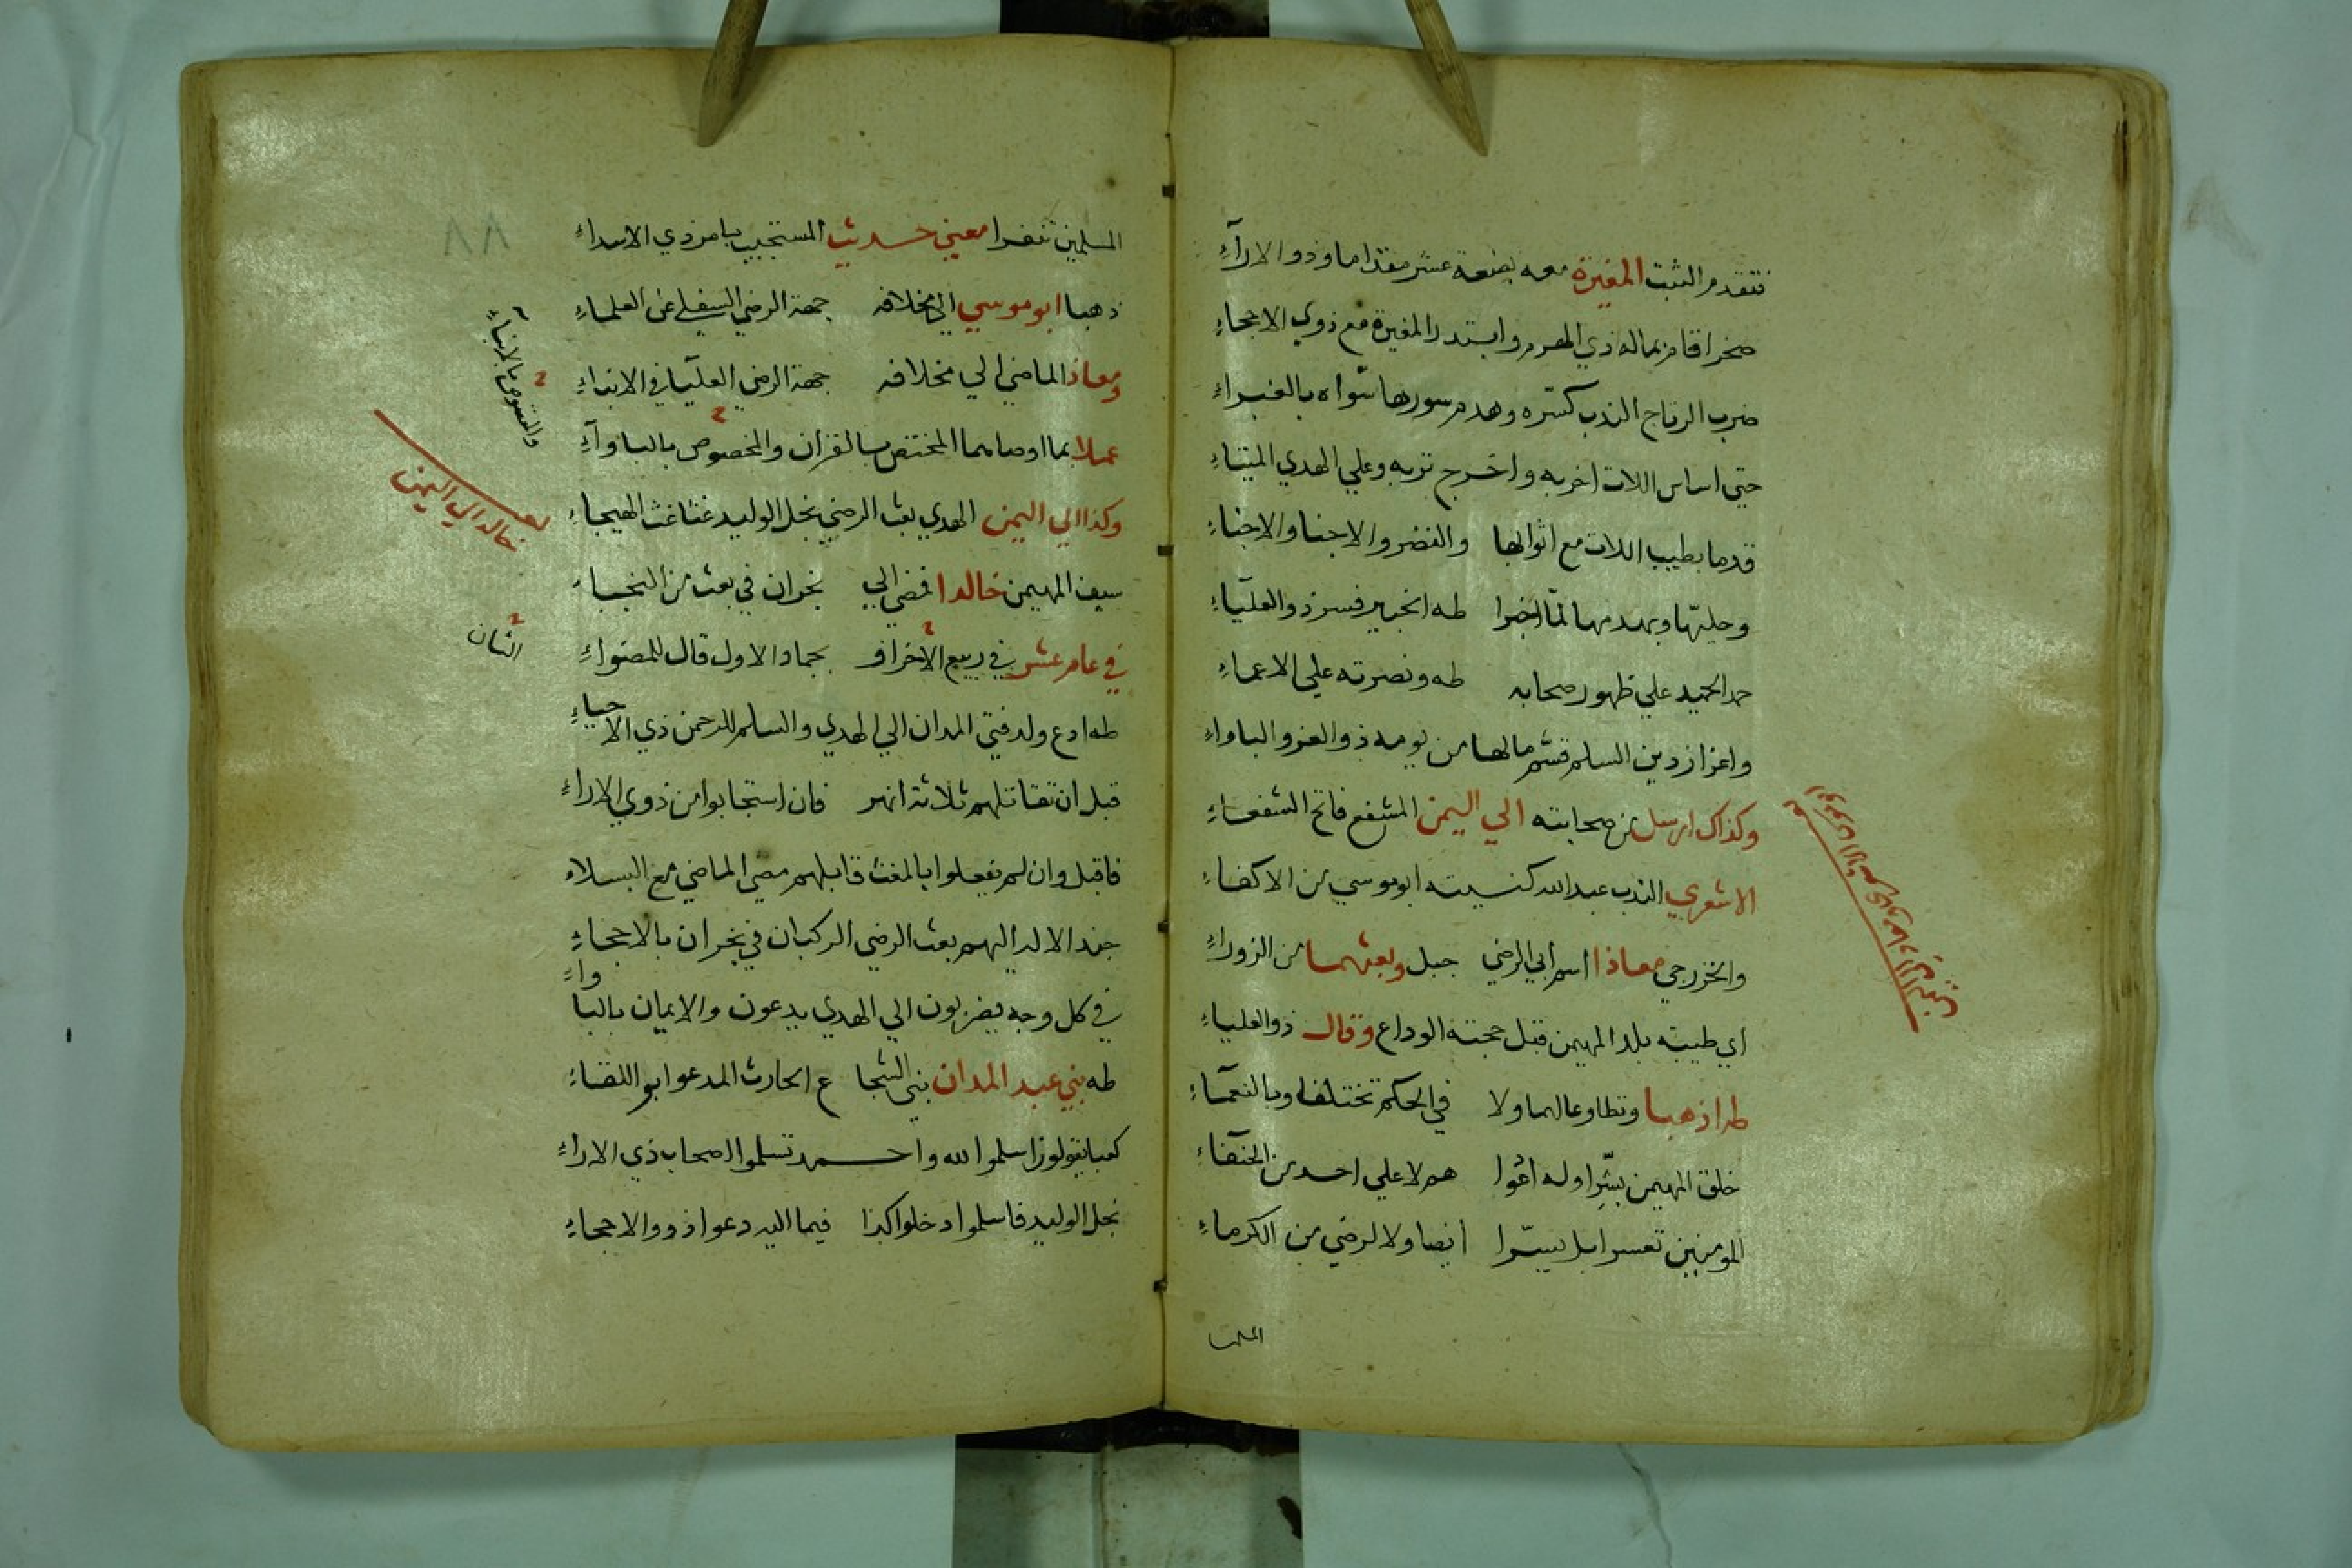 فتقدم الثبت المغيرة معه بضعة عشر مقداما وذو الارآءِ
صخرا قام بماله ذي الهرم وابتدر المغيرة مع ذوي الاعجاءِ
ضرب الرتاج الندب كسّره وهدم سورها سّواه بالغبراءِ
حتى اساس اللات اخربه واخرج تربه وعلي الهدي الميتاءِ
قدما بطيب اللات مع اثوابها والفضر والاجنا والاجناءِ
وحليّها وبهدمها لمّا اخبرا طه الخبير فسر ذو العليّاءِ
حمد الحميد علي ظهور صحابه طه ونصرته علي الاعماءِ
واعزاز دين السلم قسّم مالها من يومه ذو العز والباواءِ
وكذاك ارسل من صحابته الي اليمن المشفع فاتح الشفعاءِ
الاشعري الندب عبدالله كنيته ابوموسي من الاكفاءِ
والخزرجي معاذا اسم ابي الرضي جبل وبعثهما من الزوراءِ
اي طيبة بلد المهيمن قبل حجته الوداع وقال ذو العلياءِ
طرا ذهبا وتطاوعا لهما ولا في الحكم تختلفا وبالنعمآءِ
خلق المهيمن بشّرا وله ادعوا هم لا علي احد من الحنفآءِ
المومنين تعسرا بل يسّرا ايضا ولا لرضي من الكرماءِ
المسلمين
المسلمين تنفرا معني حديث المستجيب بامر ذي الاسداءِ
٨٨
ذهبا ابو موسي الي مخلافه جهة الرضي السفلي عن العلماءِ
ومعاذ الماضي الي مخلافه جهة الرضي العليا في الانباءِ
والمنصوص بالانباءِ
عملا بما اوصاهما المختص بالقران والمخصوص بالباوآءِ
وكذا الي اليمن الهدي بعث الرضي نجل الوليد غثا غث الهيجاءِ
بعث خالد الي اليمن
سيف المهيمن خالدا فمضي الي نجران في بعث من النجباءِ
في عام عشر في ربيع الاخر او بجماد الاول قال للمضواءِ
الثان
طه ادع ولد فتي المدان الي الهدي والسلم للرحمن ذي الاحياءِ
قبل ان تقاتلهم ثلاثة انهر فان استجابوا من ذوي الاراءِ
فاقبل وان لم يفعلوا بالمغث قابلهم مضي الماضي مع البسلاء
جند الاله اليهم بعث الرضي الركبان في نجران بالاحجاءِ
في كل وجه يضربون الي الهدي يدعون والايمان بالباواءِ
طه بني عبد المدان بني الشجاع الحارث المدعو ابو اللقاءِ
كعبا يقولوا اسلموا لله واحمد تسلموا لصحاب ذي الاراءِ
نجل الوليد فاسلموا دخلوا كذا فيما اليه دعوا ذوو الاحجاءِ